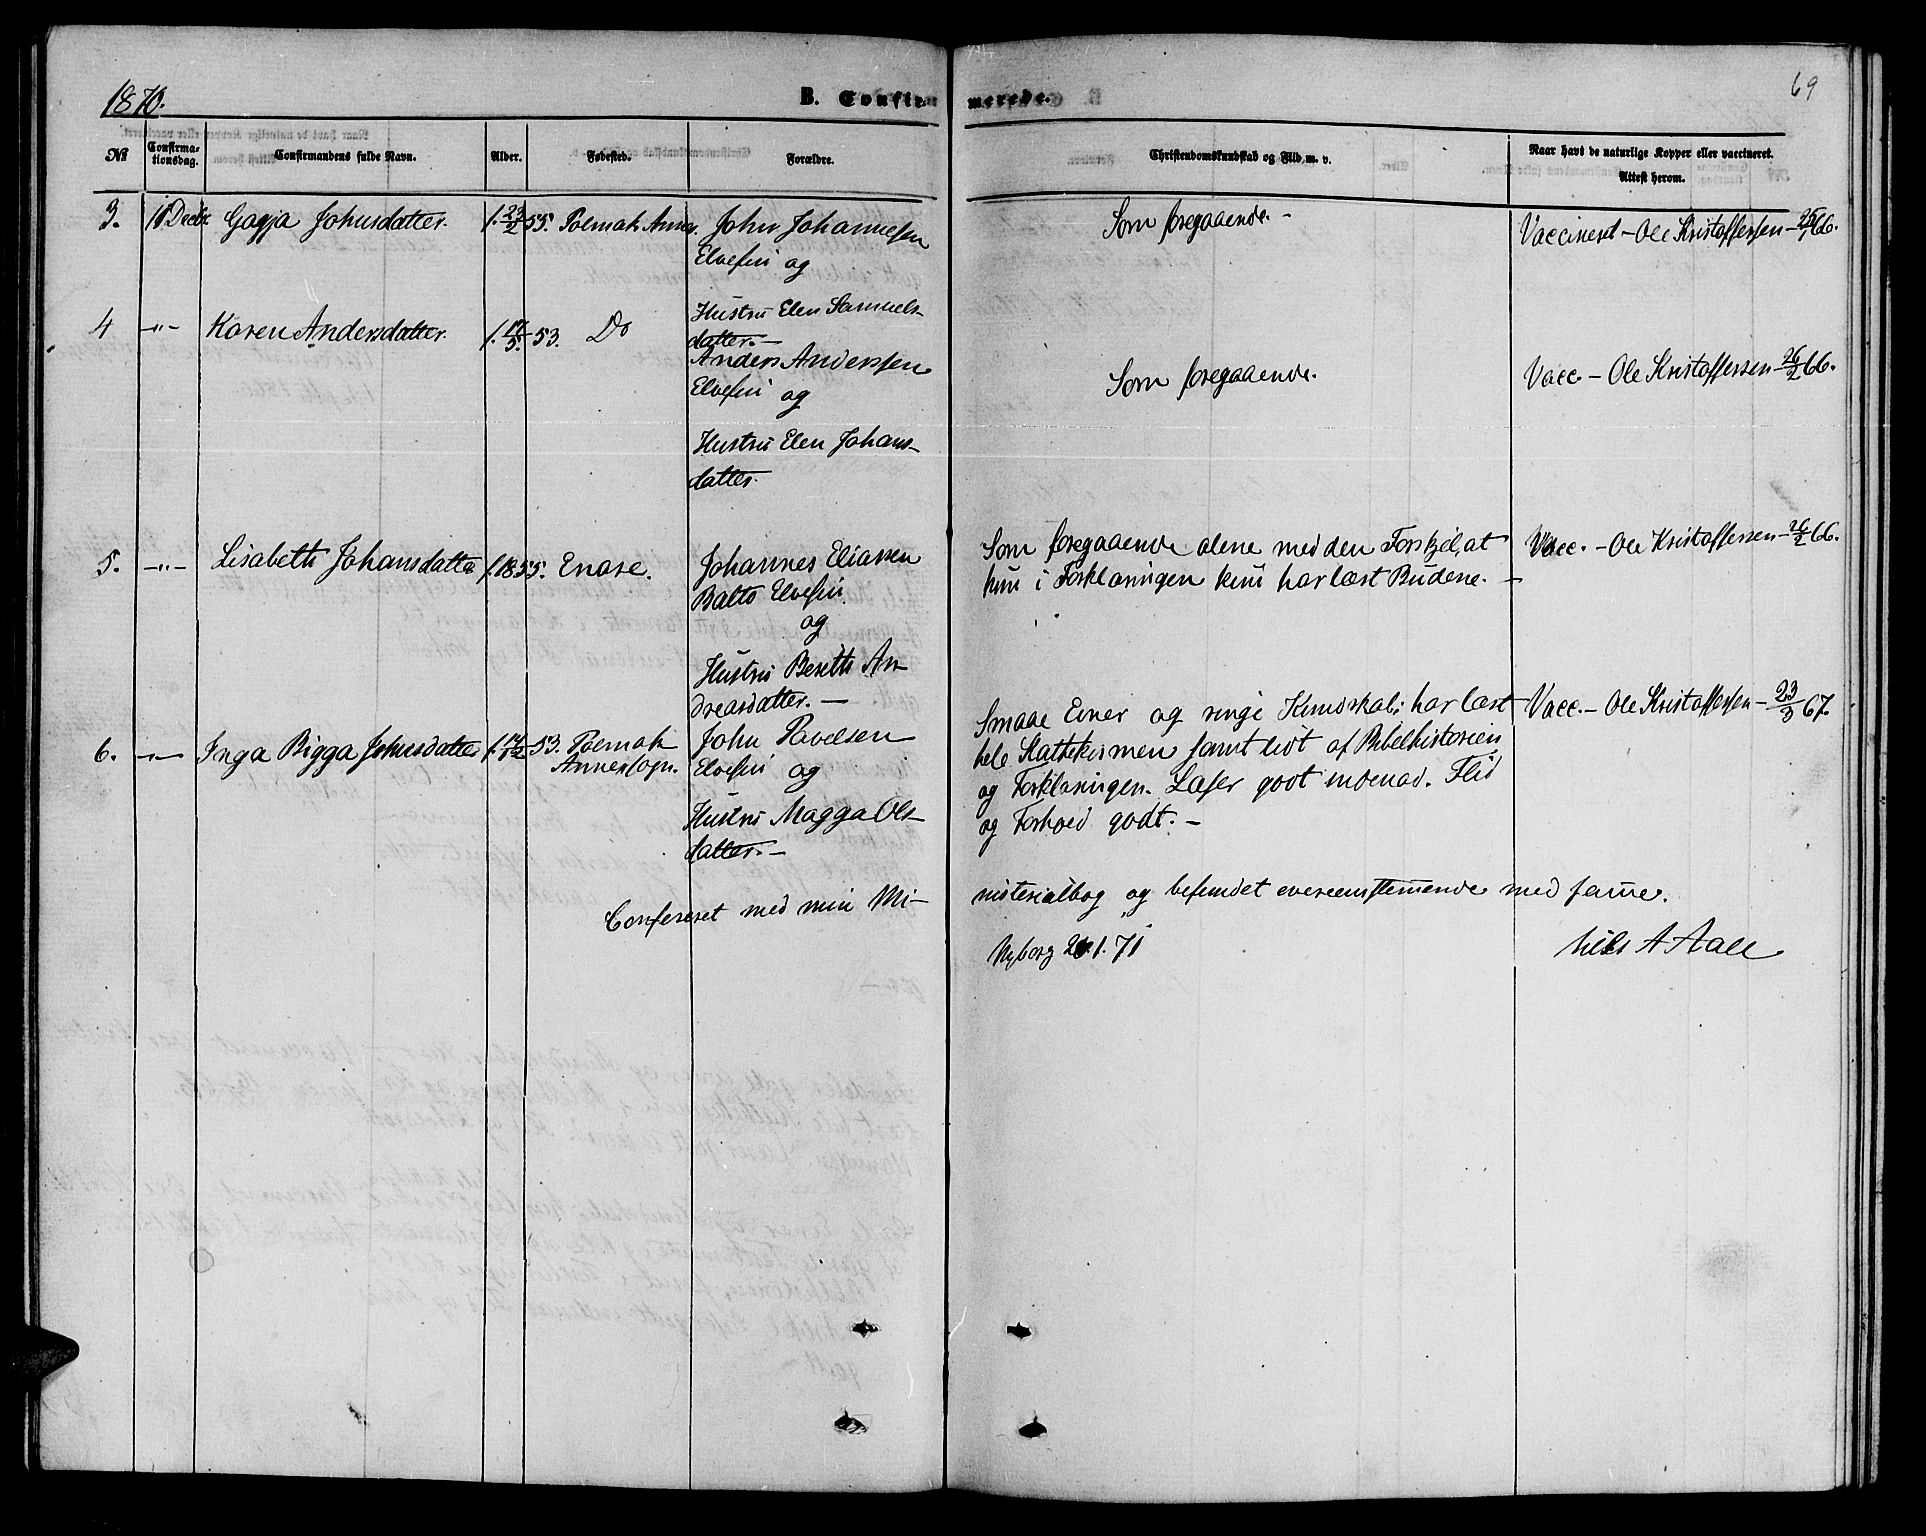 1870.
B. Confirmerede.
69
No
Confirmationsdag.
Confirmandens fulde Navn.
Alder.
Fødested.
Forældre.
Christendomskundskab og Flid, m. v.
Naar havt de naturlige Kopper eller vaccineret.
Attest herom.
3. 18 Decbr. Gagja Johnsdatter. f. 23/2 55. Polmak Annex. John Johannesen
Elvefin og
Hustru Elen Samuels-
datter. —
Som foregaaende. —
Vaccineret — Ole Kristoffersen — 66.
4 —"— Karen Andersdatter. f. 17/5. 53. Do
Anders Anderssen
Elvefin og
Hustru Elen Johans-
datter.
Som foregaaende.
Vacc. — Ole Kristoffersen — 26/2 66.
5. —"— Lisabeth Johansdatter f. 1855. Enare. Johannes Eliassen
Balto Elvefin
og
Hustru Bereth An-
dreasdatter. —
Som foregaaende alene med den Forskjel, at
hun i Forklaringen kun har læst Budene. —
Vacc. — Ole Kristoffersen — 26/2 66.
6. —"— Inga Bigga Johnsdatter f. 53. Polmak
Annexsogn.
John Pavelsen
Elvefin og
Hustru Magga Ols-
datter. —
Smaae Evner og ringe Kundskab; har læst
hele Kathekismen samt lidt af Bibelhistorien
og Forklaringen. Læser godt indenad. Flid
og Forhold godt. —
Vacc. — Ole Kristoffersen — 23/3 67.
Confereret med min Mi-
nisterialbog og befundet overeenstemmende med samme.
Nyborg 26.1.71
Nils A Aall